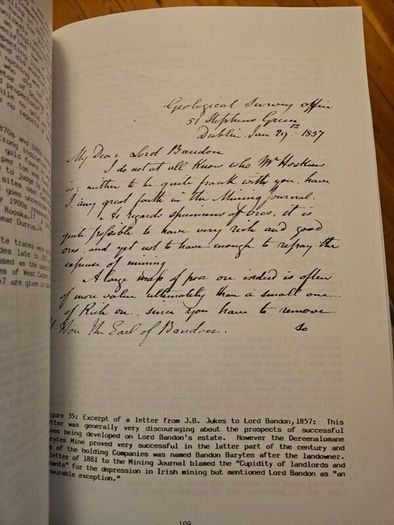 Geological Survey Office
51 Stephens Green
Dublin, Jan 29th 1857
My Dear Lord Bandon
I do not at all know who Mr
is; neither to be quite frank with you, have
I any great faith in the Mining Journal.
As regards specimens of ores, it is
quite possible to have very rich and good
ones, and yet not to have enough to repay the
expense of mining
A large mass of poor ore indeed is often
of more value ultimately than a small one
of Rich ore, since you have to remove
Hon The Earl of Bandon.
so
gure 35: Excerpt of a letter from J.B. Jukes to Lord Bandon,1857: This
tter was generally very discouraging about the prospects of successful
nes being developed on Lord Bandon's estate. However the Dereenalomane
rytes Mine proved very successful in the latter part of the century and
of the holding Companies was named Bandon Barytes after the landowner.
letter of 1881 to the Mining Journal blamed the "Cupidity of landlords and
nts" for the depression in Irish mining but mentioned Lord Bandon as "an
ourable exception."
109